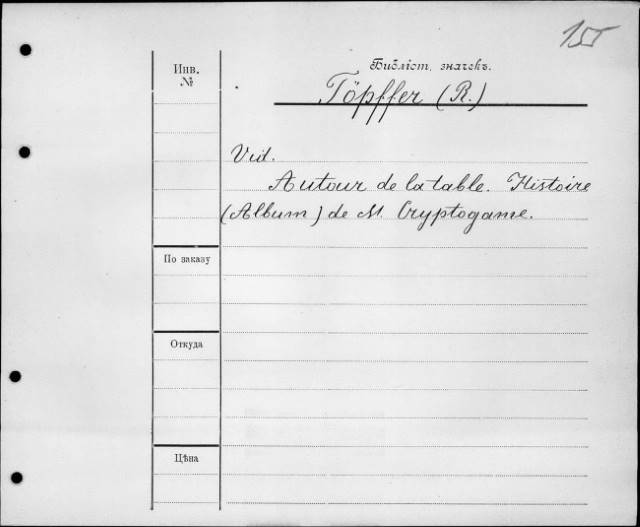 155
Инв.
№
Библіот. значекъ.
Töpffer (R.)
Vid.
Autour de la table. Histoire
(Album) de M. Cryptogame.
По заказу
Откуда
Цѣна